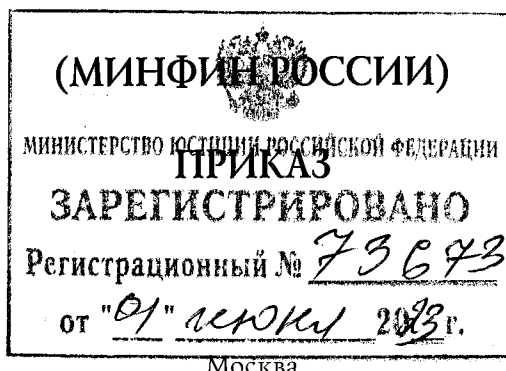 (МИНФИН РОССИИ)
МИНИСТЕРСТВО ЮСТИЦИИ РОССИЙСКОЙ ФЕДЕРАЦИИ
ПРИКАЗ
ЗАРЕГИСТРИРОВАНО
Регистрационный № 73673
от "01" июня 2023 г.
Москва